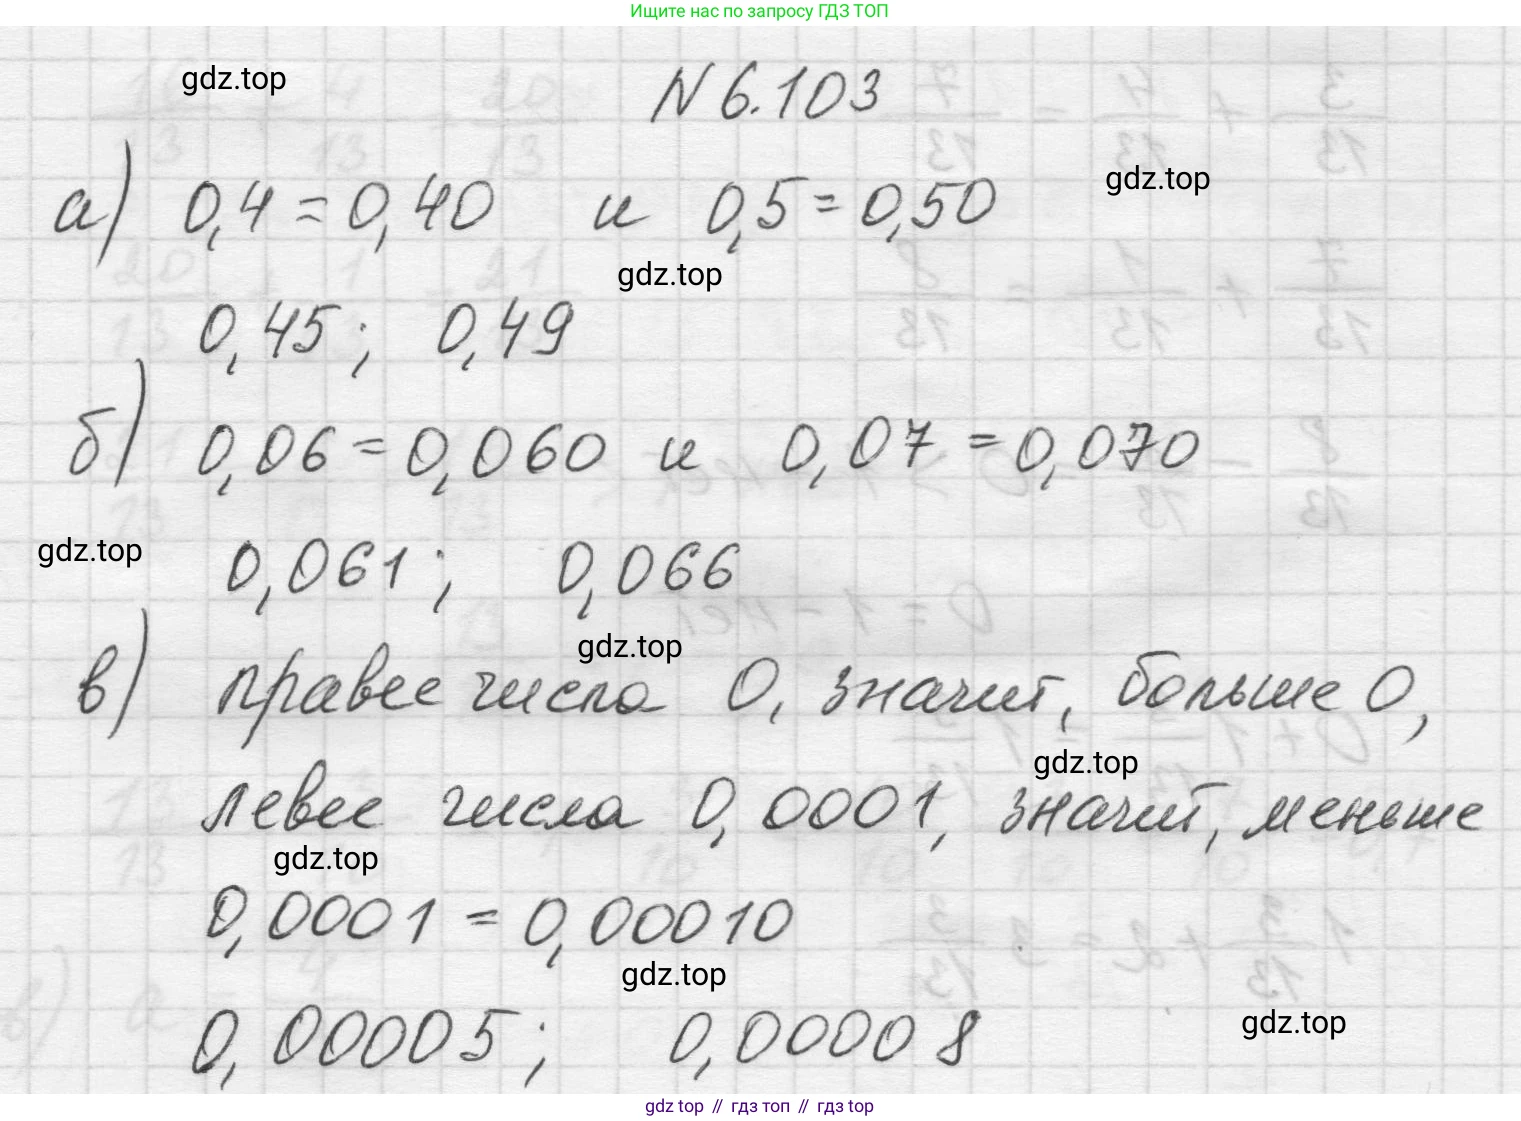 Ищите нас по запросу ГДЗ ТОП
gdz.top
N 6.103
а) 0,4 = 0,40 и 0,5 = 0,50
gdz.top
gdz.top
0,45; 0,49
б) 0,06 = 0,060 и 0,07 = 0,070
gdz.top
0,061; 0,066
gdz.top
в) правее числа 0, значит, больше 0,
gdz.top
левее числа 0,0001, значит, меньше
gdz.top
0,0001 = 0,00010
gdz.top
0,00005; 0,00008
gdz.top
gdz top // гдз топ // гдз top